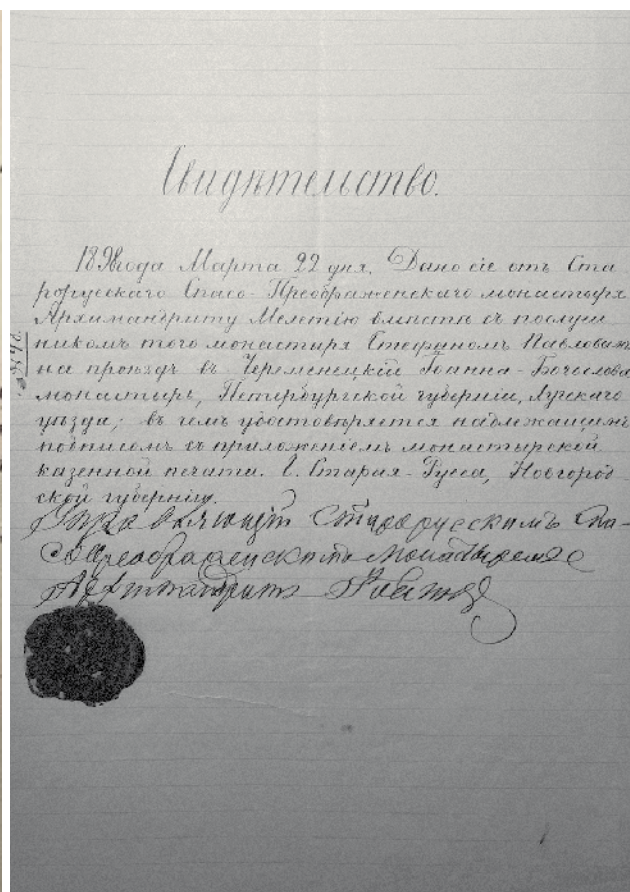 Свидѣтельство.
189 года Марта 22 дня. Дано сіе отъ Ста
рорусскаго Спасо-Преображенскаго монастыря
Архимандриту Мелетію вмѣстѣ съ послуш
никомъ того монастыря Стефаномъ Павловымъ
на проѣздъ въ Череменецкій Іоанно-Богослов
монастырь, Петербургской губерніи, Лужскаго
уѣзда; въ чемъ удостовѣряется надлежащимъ
подписомъ съ приложеніемъ монастырской
казенной печати. Г. Старая-Русса, Новгород
ской губерніи.
Управляющій Старорусскимъ Спа-
сопреображенскимъ Монастыремъ
Архимандритъ